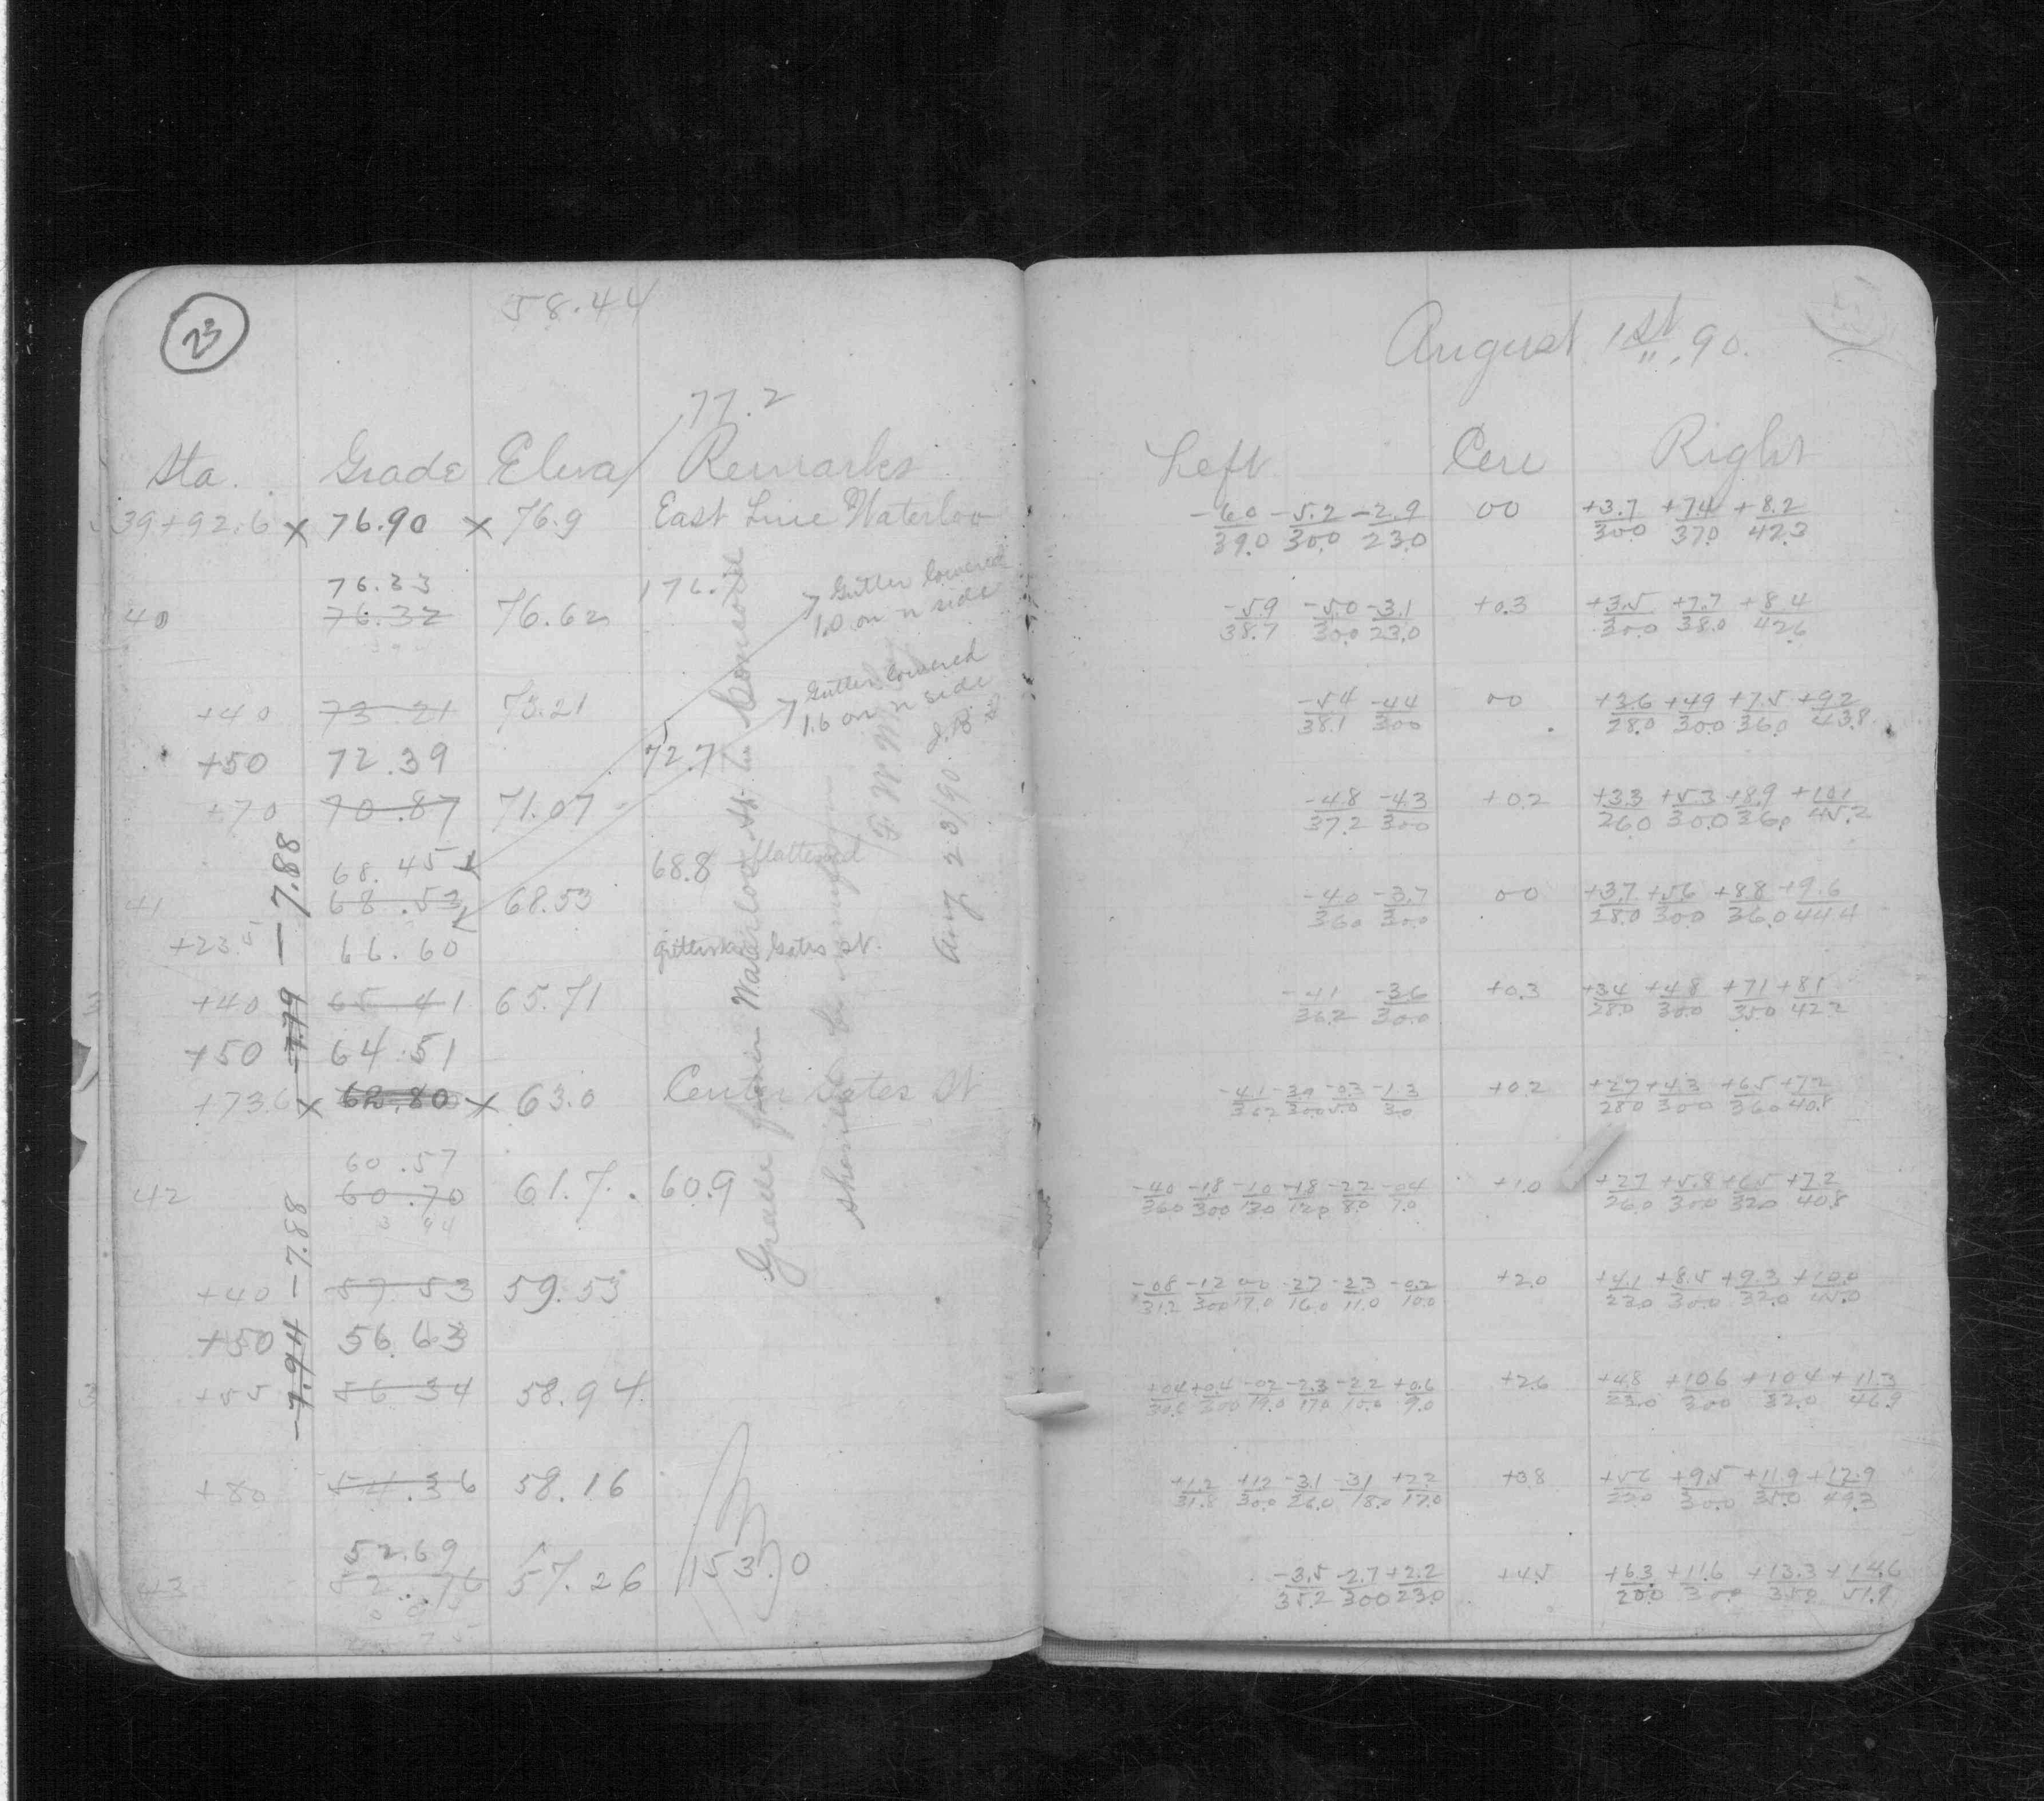 23
58.44
77.2
Sta. Grade Eleva Remarks
39+92.6 x 76.90 x 76.9 East Line Waterloo
76.33 176.7
40 76.32 76.62
Gutter lowered
1.0 on n side
Gutter lowered
1.6 on n side
J.B.
+40 73.21 73.21
+50 72.39 72.7
+70 70.87 71.07
68.45 68.8 flattened
41 68.53 68.53
+23.5 66.60 Gates St.
+40 65.41 65.71
+50 64.51
+73.6 x 62.80 x 63.0 Center Gates St
60.57
42 60.70 61.7 60.9
+40 57.53 59.53
+50 56.63
+55 56.34 58.94
+80 54.36 58.16
52.69
43 52.76 57.26 153.0
-7.88
-7.79
-7.88
-7.94
Grade from Waterloo St. to Concord
should be
F W W
Aug 23/90
August 1st, 90.
Left Cen Right
-6.0 -5.2 -2.9 00 +3.7 +7.4 +8.2
39.0 30.0 23.0 30.0 37.0 42.3
-5.9 -5.0 -3.1 +0.3 +3.5 +7.7 +8.4
38.7 30.0 23.0 30.0 38.0 42.6
-5.4 -4.4 00 +3.6 +4.9 +7.5 +9.2
38.1 30.0 28.0 30.0 36.0 43.8
-4.8 -4.3 +0.2 +3.3 +5.3 +8.9 +10.1
37.2 30.0 26.0 30.0 36.0 45.2
-4.0 -3.7 00 +3.7 +5.6 +8.8 +9.6
36.0 30.0 28.0 30.0 36.0 44.4
-4.1 -3.6 +0.3 +3.4 +4.8 +7.1 +8.1
36.2 30.0 28.0 30.0 35.0 42.2
-4.1 -3.9 -0.3 -1.3 +0.2 +2.7 +4.3 +6.5 +7.2
36.2 30.0 5.0 3.0 28.0 30.0 36.0 40.8
-4.0 -1.8 -1.0 -1.8 -2.2 -0.4 +1.0 +2.7 +5.8 +6.5 +7.2
36.0 30.0 13.0 12.0 8.0 7.0 26.0 30.0 32.0 40.8
-0.8 -1.2 0.0 -2.7 -2.3 -0.2 +2.0 +4.1 +8.5 +9.3 +10.0
31.2 30.0 17.0 16.0 11.0 10.0 23.0 30.0 32.0 45.0
+0.4 +0.4 -0.2 -2.3 -2.2 +0.6 +2.6 +4.8 +10.6 +10.4 +11.3
30.6 30.0 19.0 17.0 10.0 9.0 23.0 30.0 32.0 46.9
+1.2 +1.2 -3.1 -3.1 +2.2 +3.8 +5.6 +9.5 +11.9 +12.9
31.8 30.0 26.0 18.0 17.0 22.0 30.0 35.0 49.3
-3.5 -2.7 +2.2 +4.5 +6.3 +11.6 +13.3 +14.6
35.2 30.0 23.0 20.0 30.0 35.0 51.9